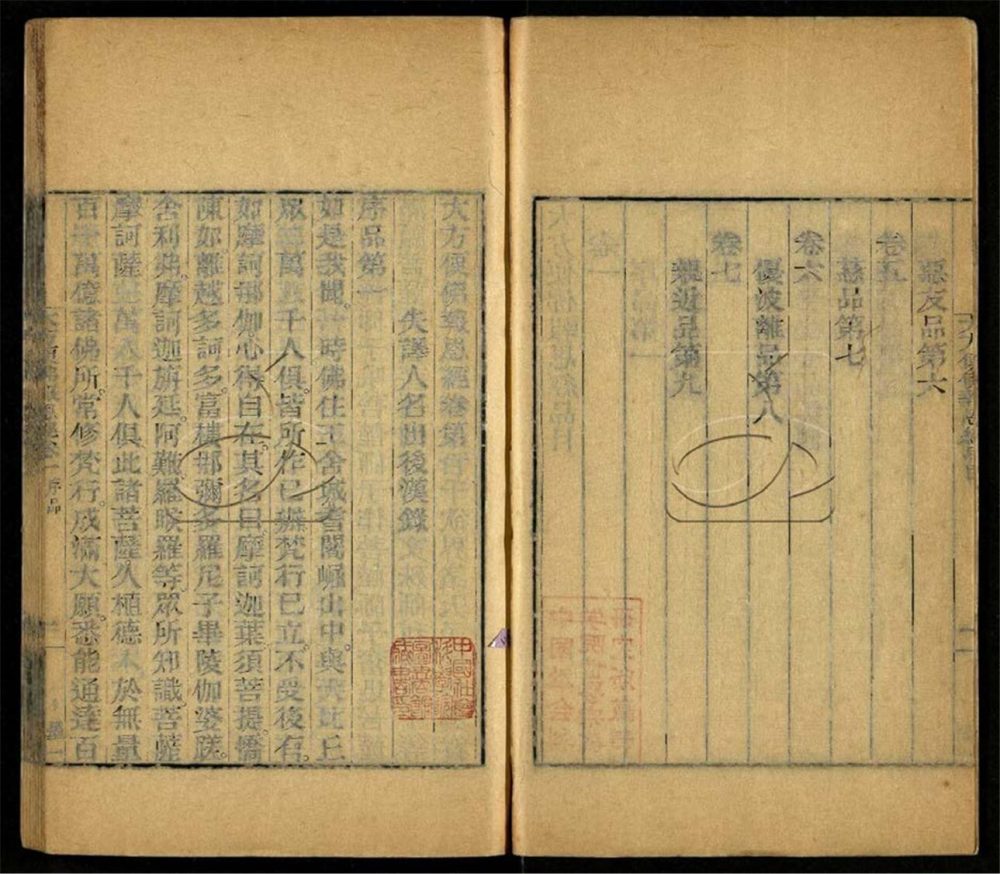 惡友品第六
卷五
慈品第七
卷六
優波離品第八
卷七
親近品第九
大方便佛報恩經卷第一
失譯人名出後漢錄
序品第一
如是我聞。一時佛住王舍城耆闍崛山中。與大比丘
眾二萬八千人俱。皆所作已辦。梵行已立。不受後有。
如摩訶那伽心得自在。其名曰摩訶迦葉須菩提。憍
陳如。離越多訶多。富樓那彌多羅尼子畢陵伽婆蹉。
舍利弗。摩訶迦旃延。阿難。羅睺羅等。眾所知識。菩薩
摩訶薩三萬八千人俱此諸菩薩久植德本。於無量
百千萬億諸佛所。常修梵行。成滿大願。悉能通達百